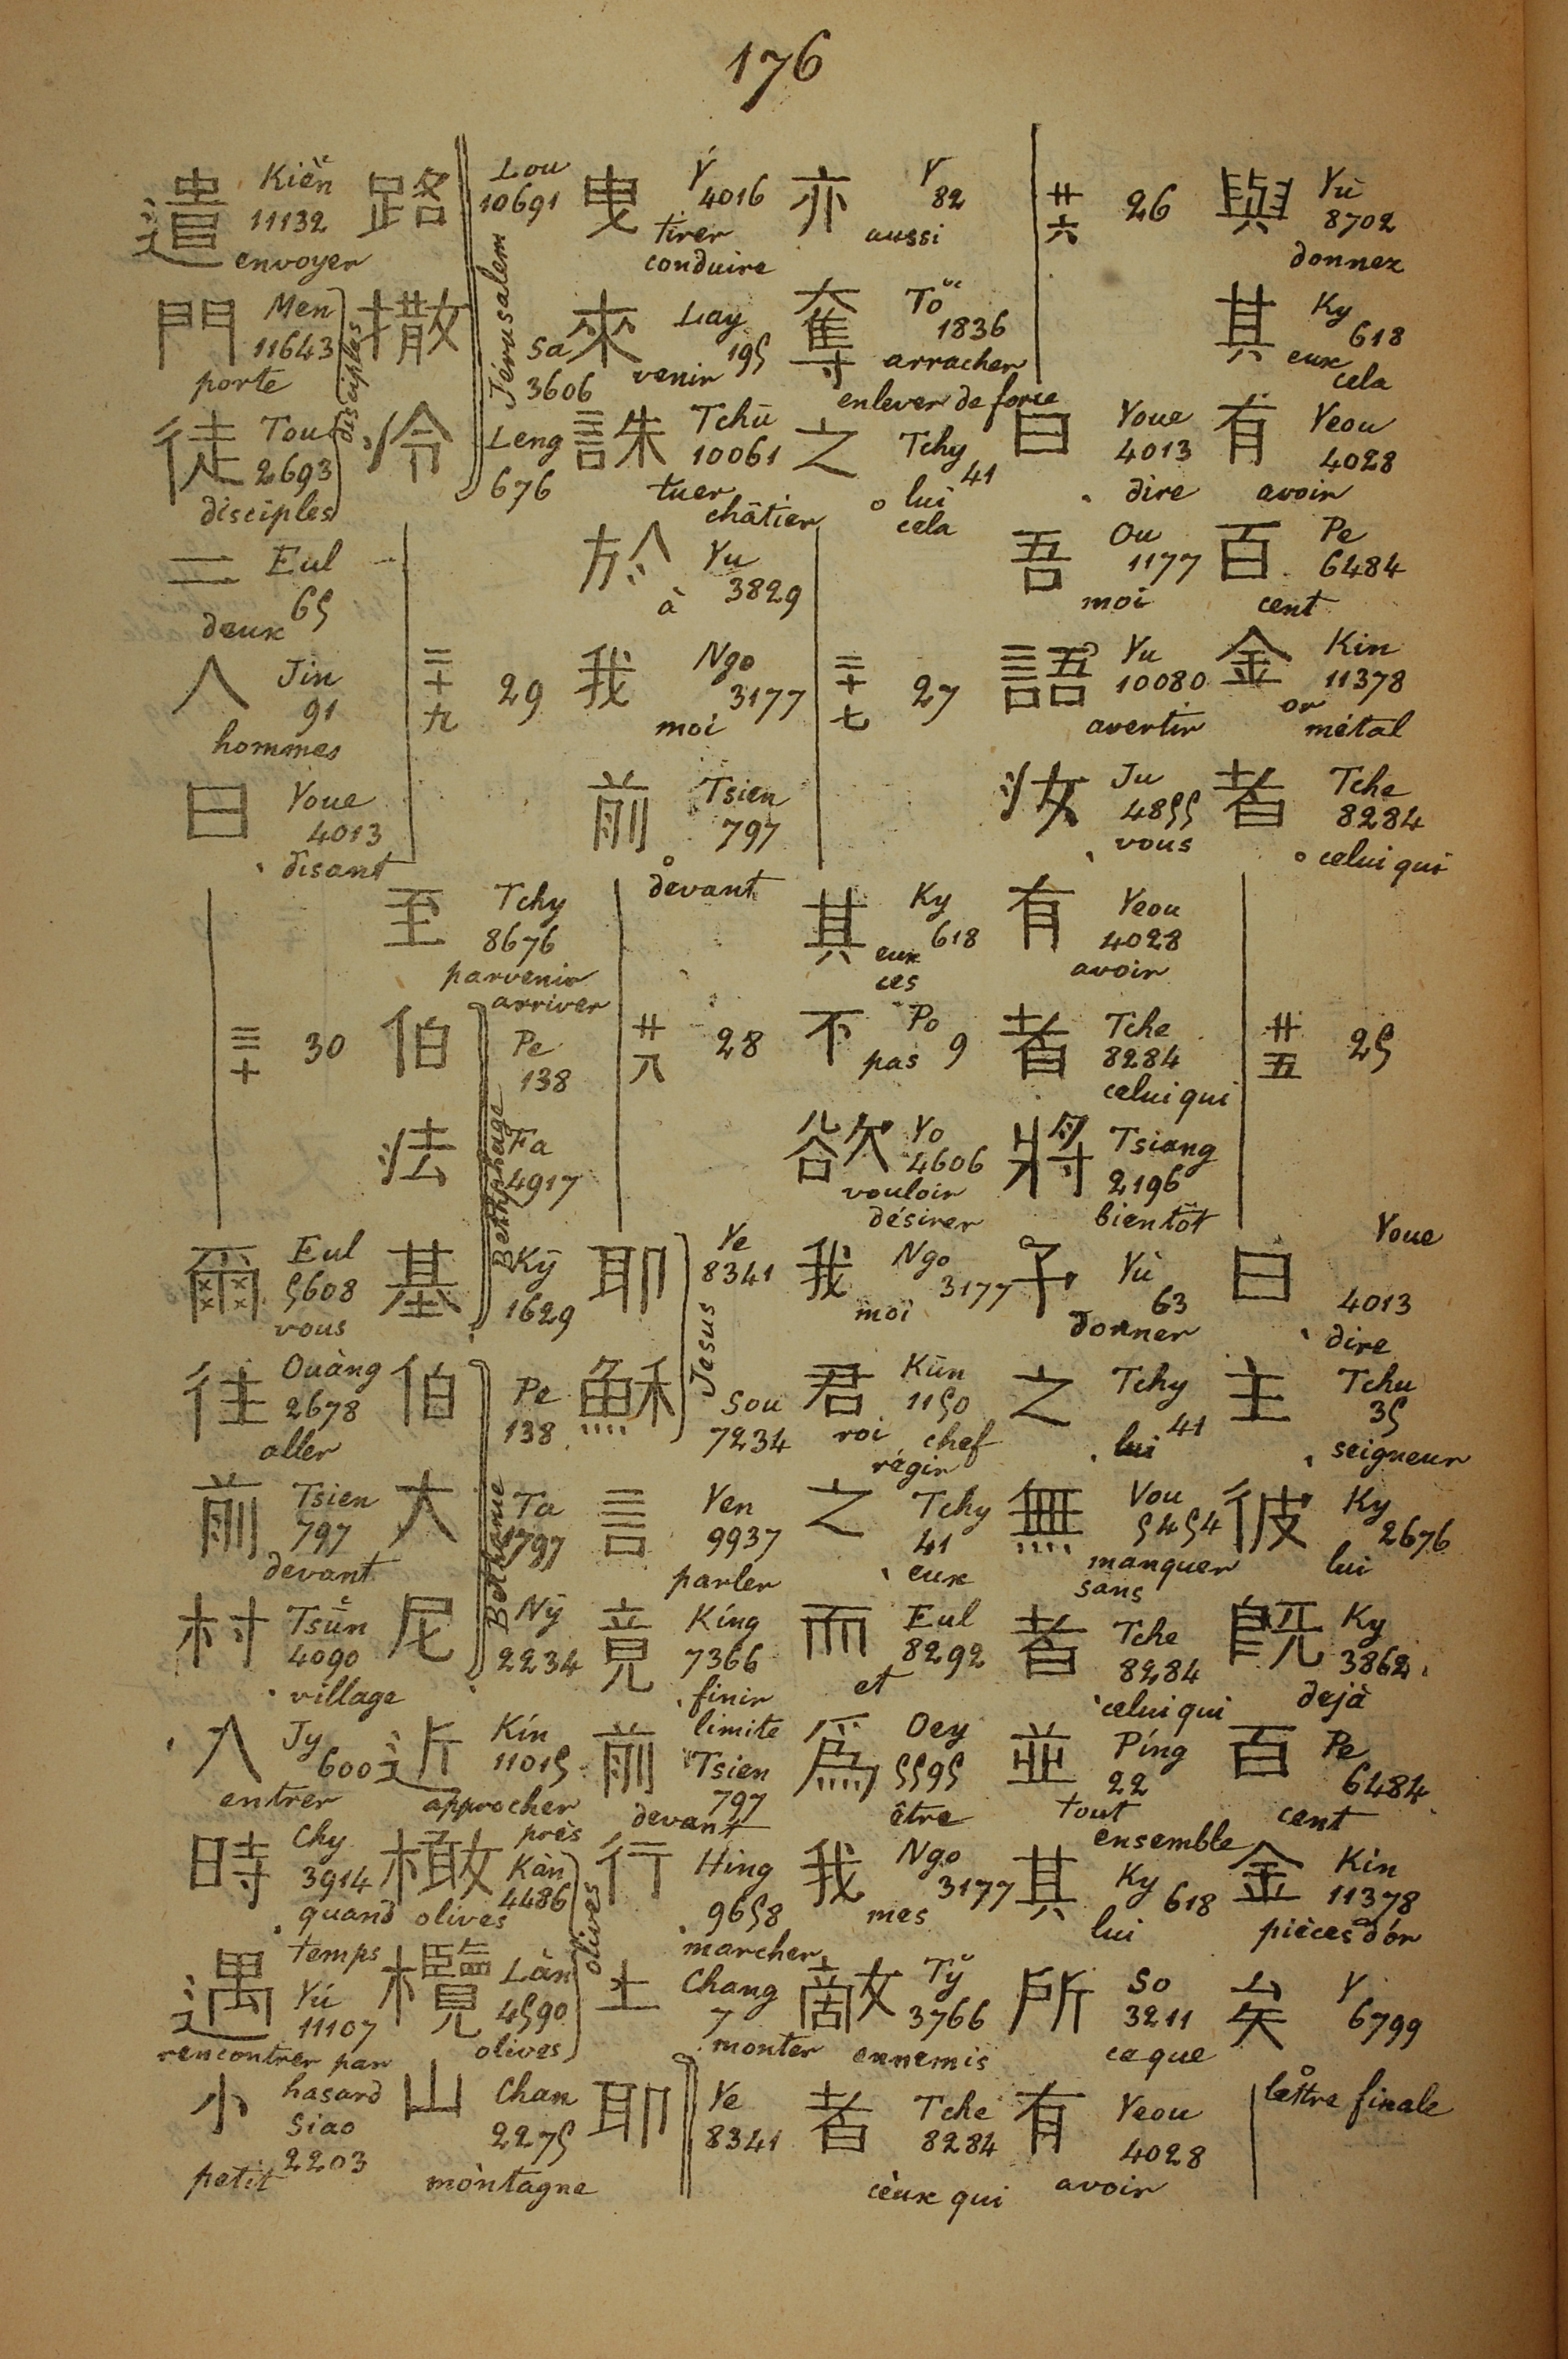 176
與 Yù 8702 donnez
其 Ky 618 eux cela
有 Yeou 4028 avoir
百 Pe 6484 cent
金 Kin 11378 or métal
者 Tche 8284 celui qui
廿五 25
曰 Youe 4013 dire
主 Tchu 35 seigneur
彼 Ky 2676 lui
旣 Ky 3862 dejà
百 Pe 6484 cent
金 Kin 11378 pièces d'or
矣 Y 6799 lettre finale
廿六 26
曰 Youe 4013 dire
吾 Ou 1177 moi
語 Yu 10080 avertir
汝 Ju 4855 vous
有 Yeou 4028 avoir
者 Tche 8284 celui qui
將 Tsiang 2196 bientôt
予 Yù 63 donner
之 Tchy 41 lui
無 Vou 5454 manquer sans
者 Tche 8284 celui qui
並 Píng 22 tout ensemble
其 Ky 618 lui
所 So 3211 ce que
有 Yeou 4028 avoir
亦 Y 82 aussi
奪 To 1836 arracher enlever de force
之 Tchy 41 lui cela
二十七 27
其 Ky 618 eux ces
不 Po 9 pas
欲 Yo 4606 vouloir désirer
我 Ngo 3177 moi
君 Kūn 1150 roi chef régir
之 Tchy 41 eux
而 Eul 8292 et
爲 Oey 5595 être
我 Ngo 3177 mes
敵 Ty 3766 ennemis
者 Tche 8284 ceux qui
曳 Ý 4016 tirer conduire
來 Lay 195 venir
誅 Tchū 10061 tuer châtier
於 Yu 3829 à
我 Ngo 3177 moi
前 Tsien 797 devant
廿八 28
耶 Ye 8341
穌 Sou 7234
Jesus
言 Yen 9937 parler
竟 Kíng 7366 finir limite
前 Tsien 797 devant
行 Hing 9658 marcher
上 Chang 7 monter
耶 Ye 8341
路 Lou 10691
撒 Sa 3606
冷 Leng 676
Jérusalem
二十九 29
至 Tchy 8676 parvenir arriver
伯 Pe 138
法 Fa 4917
基 Ky 1629
Bethphage
伯 Pe 138
大 Ta 1797
尼 Ny 2234
Bethanie
近 Kín 11015 approcher près
橄 Kàn 4486 olives
欖 Làn 4590 olives
olives
山 Chan 2275 montagne
遣 Kièn 11132 envoyer
門 Men 11643 porte
徒 Tou 2693 disciples
disciples
二 Eul 65 deux
人 Jin 91 hommes
曰 Youe 4013 disant
三十 30
爾 Eul 5608 vous
往 Ouàng 2678 aller
前 Tsien 797 devant
村 Tsūn 4090 village
入 Jy 600 entrer
時 Chy 3914 quand temps
遇 Yú 11107 rencontrer par hasard
小 Siao 2203 petit